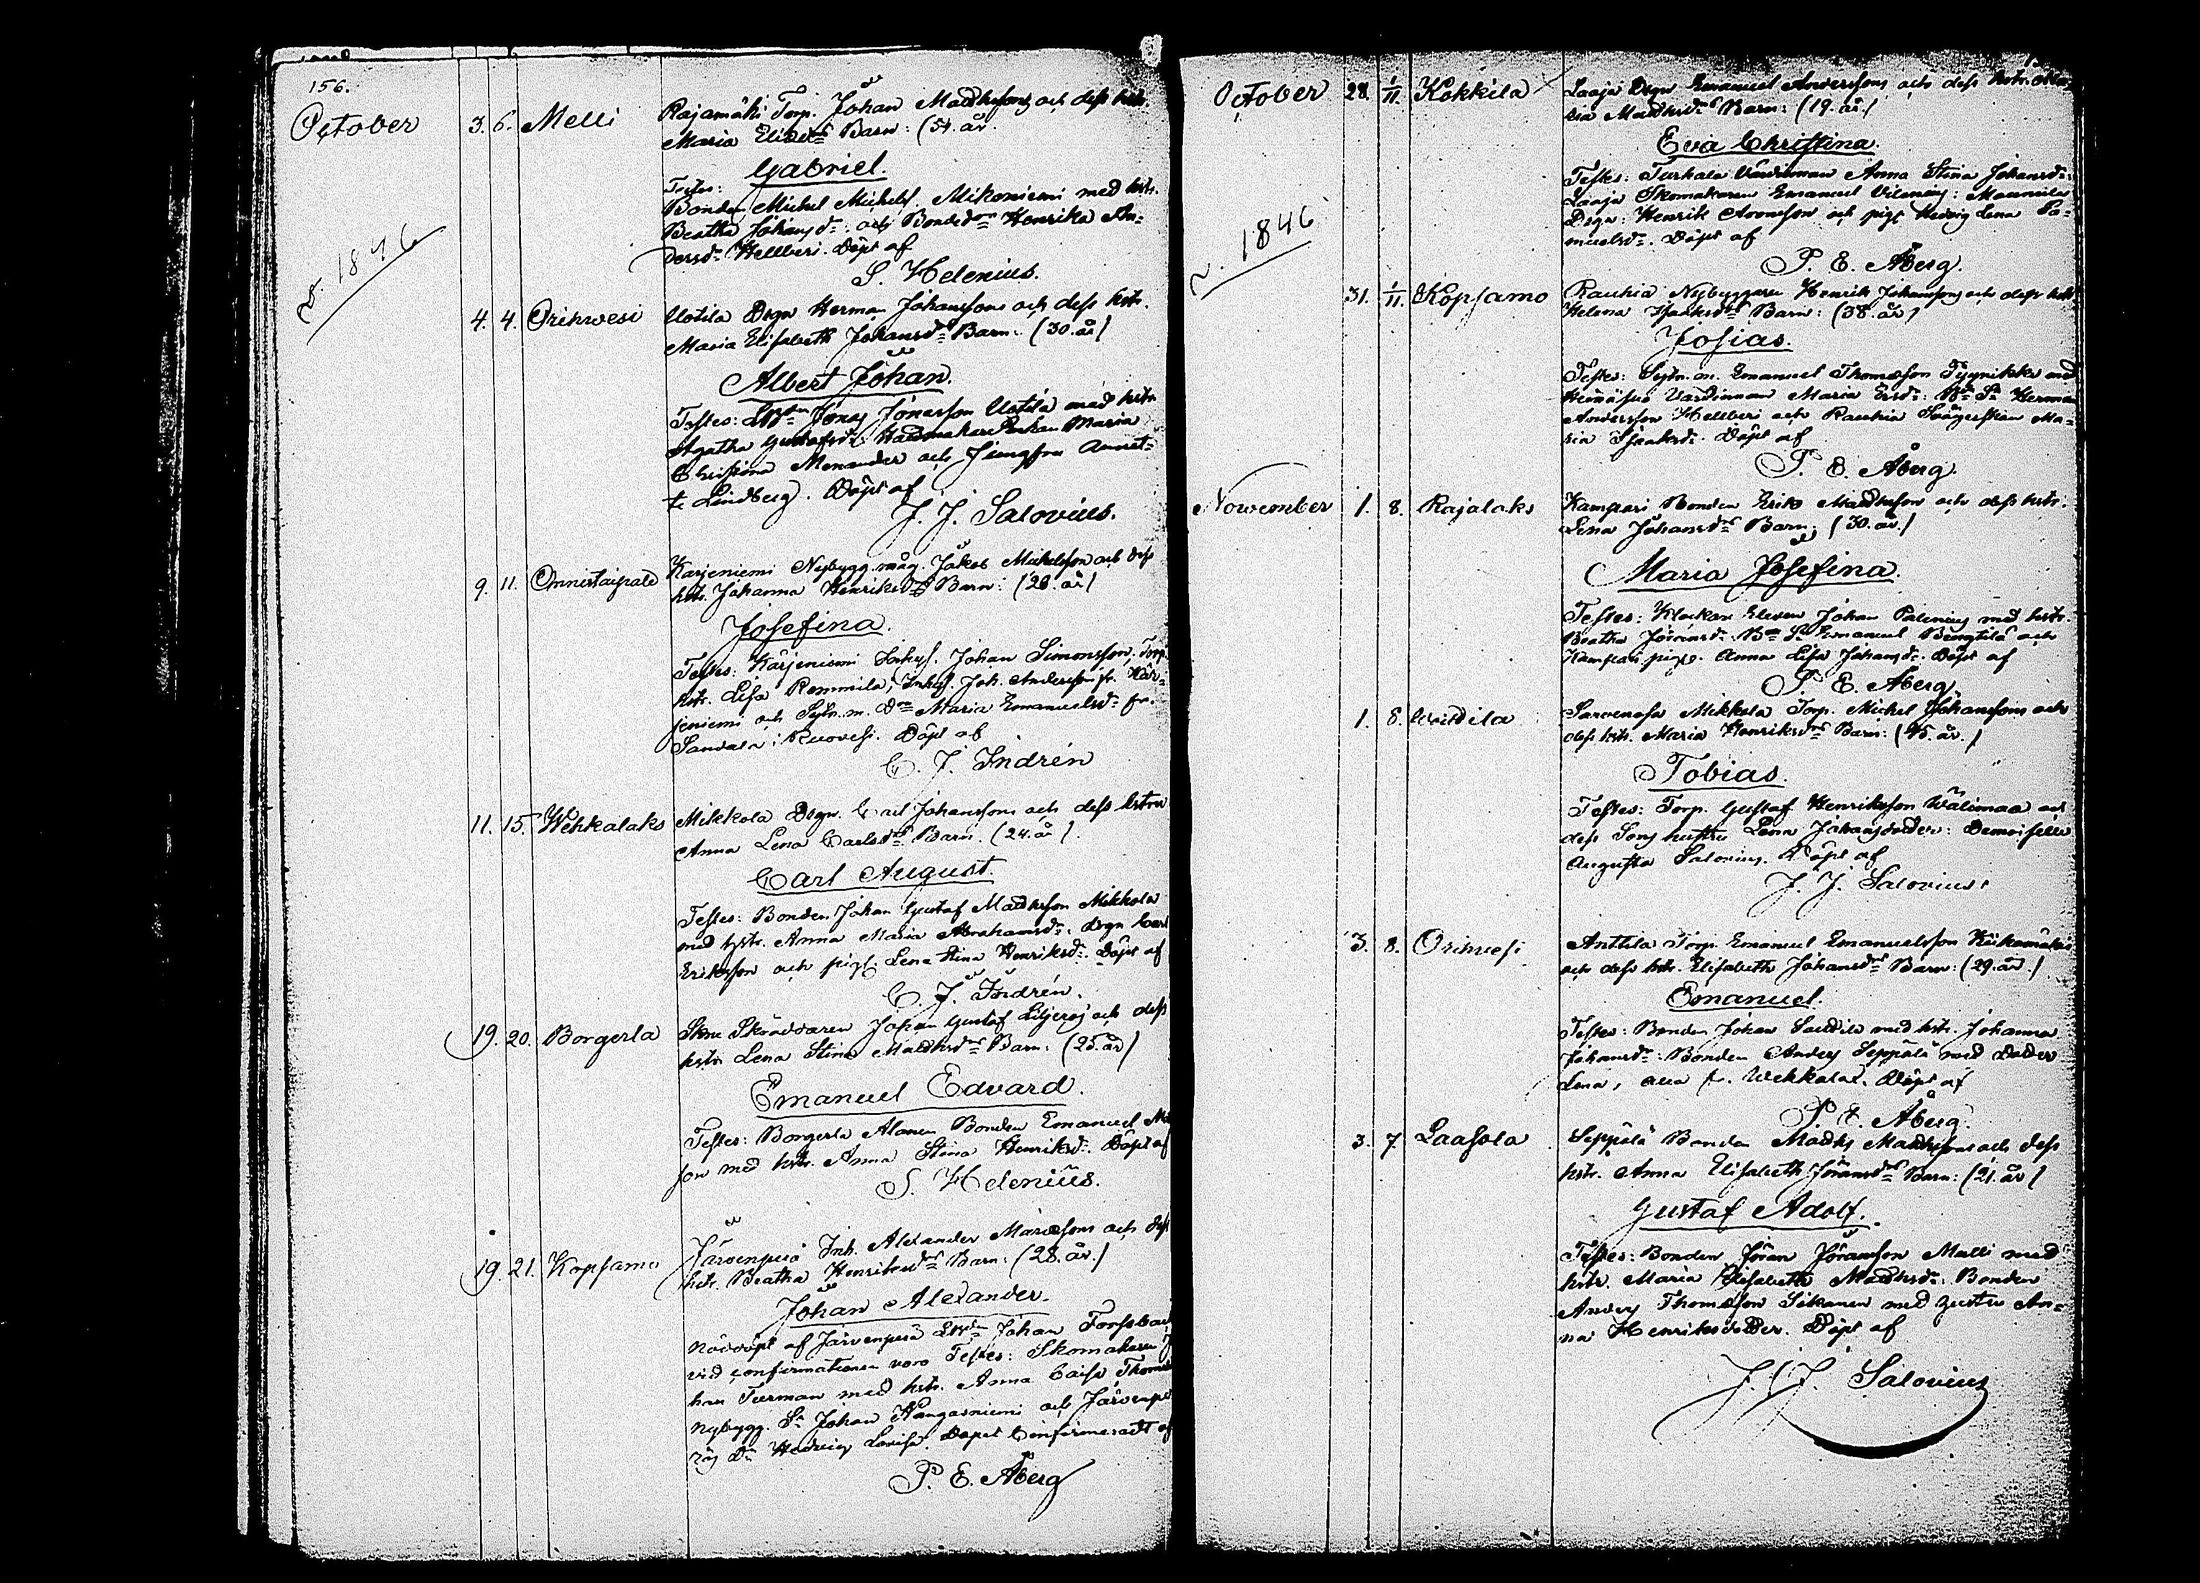 156.
October 3. 6. Melli Rajamäki Torp. Johan Matthsson och dess hstr.
Maria Barn: (51. år.
Gabriel.
Testes:
Bonden Michel Michelss. Mikoniemi med hstr.
Beatha Johansdr. och Bondedr. Henrika An-
dersdr. Hellberi. Döpt af
S. Helenius.
D. 1846
4. 4. Orihwesi Uotila Drgn Herman Johansson och dess hstr.
Maria Elisabeth Johansdrs Barn: (30. år)
Albert Johan.
Testes: Jonas Jonasson Uotila med hstr
Agatha Gustafsdr. Maria
Christina Menander och Jungfru Annet-
te Lindberg. Döpt af
J. J. Salovius.
9. 11. Onnistaipale Karjeniemi Nybygg. måg Jakob Michelsson och dess
hstr. Johanna Henriksdrs Barn: (28. år)
Josefina.
Testes: Karjeniemi Inhys. Johan Simonsson, Torp.
hstr. Lisa Rommila, Inhys. Joh. Andersson fr. Kär-
jeniemi och Sytn. m. Dr Maria Emanuelsdr fr.
Sandala i Ruovesi. Döpt af
C. J. Indrén
11. 15. Wehkalaks Mikkola Drgn. Carl Johansson och dess hstru
Anna Lena Carlsdrs Barn. (24. år).
Carl August.
Testes: Bonden Johan Gustaf Matthsson Mikkola
med hstr. Anna Maria Abrahamsdr. drgn Carl
Eriksson och pig. Lena Stina Henriksdr. Döpt af
C. J. Indrén.
19. 20. Borgerla Skräddaren Johan Gustaf Liljeroj och dess
hstr. Lena Stina Matthsdrs Barn: (25. år)
Emanuel Edvard.
Testes: Borgerla Alanen Bonden Emanuel
son med hstr. Anna Stina Henriksdr. Döpt af
S. Helenius.
19. 21. Kopsamo Järvenpää Inh. Alexander Mårtsson och dess
hstr. Beatha Henriksdrs Barn: (28. år.)
Johan Alexander.
Nöddöpt af Järvenpää Johan
vid confirmationen voro Testes: Skomakaren
han Turman med hstr. Anna Caisa
Nybygg. Sn Johan Kangasniemi och Järvenpä
Dr Hedvig Lovisa. Dopet Confirmeradt af
P. E. Åberg
October 28. 1/11. Kokkila Laaja Drgn Emanuel Andersson och dess hstr. Ma-
ria Matthsdrs Barn: (19. år)
Eva Christina.
Testes: Turkala Värdinnan Anna Stina Johansdr:
Laaja Skomakaren Emanuel Vilenius:
Drgn: Henrik Aronsson och pig. Hedvig Lena Sa-
muelsdr. Döpt af
P. E. Åberg.
D. 1846
31. 1/11. Kopsamo Rauhia Nybyggaren Henrik Johansson och dess hstr.
Helena Isaksdrs Barn: (38. år)
Josias.
Testes: Sytn. m. Emanuel Thomasson
Värdinnan Maria Ersdr: Herman
Andersson Hellberi och Rauhia Svägerskan Ma-
ria Isaksdr. Döpt af
P. E. Åberg.
November 1. 8. Rajalaks Kampari Bonden Erik Matthsson och dess hstr.
Lena Johansdrs Barn: (30. år.)
Maria Josefina.
Testes: Klockar Eleven Johan Palenius med hstr.
Beatha Emanuel Bengtilä och
Kampari pig. Anna Lisa Johansdr. Döpt af
P. E. Åberg.
1. 8. Mikkola Torp. Michel Johansson och
dess hstr. Maria Henriksdrs Barn: (45. år.)
Tobias.
Testes: Torp. Gustaf Henriksson Wälimaa och
dess Sons hustru Lena Johansdotter: Demoiselle
Augusta Salovius. Döpt af
J. J. Salovius.
3. 8. Orihvesi Anttila Torp. Emanuel Emanuelsson
och dess hstr. Elisabeth Johansdrs Barn: (29. år.)
Emanuel.
Testes: Bonden Johan med hstr. Johanna
Johansdr: Bonden Anders Seppälä med Dotter
Lena, alla fr. Wehkalax. Döpt af
P. E. Åberg.
3. 7. Laasola Seppälä Bonden Matths Matthsson och dess
hstr. Anna Elisabeth Göransdrs Barn: (21. år)
Gustaf Adolf.
Testes: Bonden Jöran Jöransson Malli med
hstr. Maria Elisabeth Matthsdr: Bonden
Anders Thomasson Sikanen med hustru An-
na Henriksdotter. Döpt af
J. J. Salovius